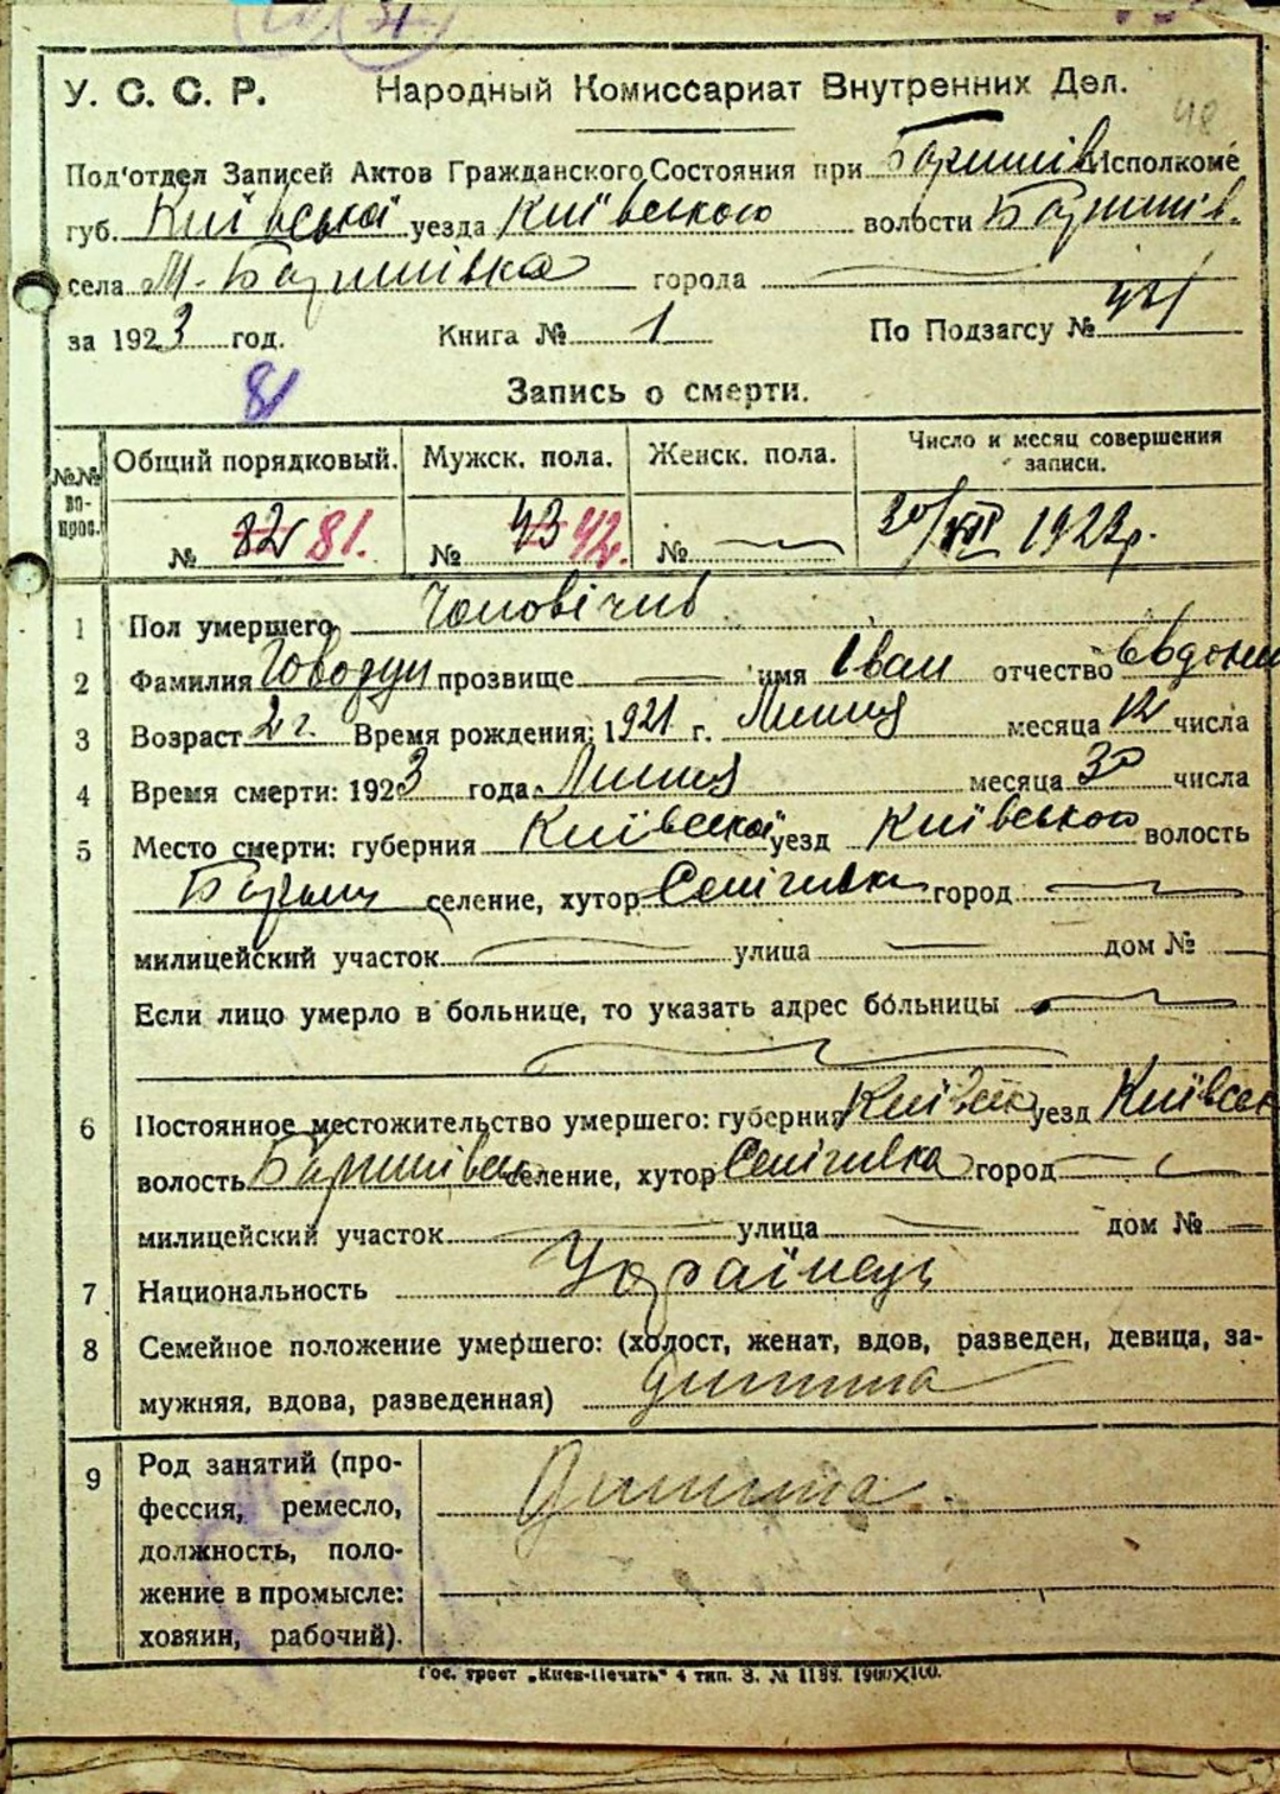 31
У. С. С. Р. Народный Комиссариат Внутренних Дел.
48
Под'отдел Записей Актов Гражданского Состояния при Баришів Исполкоме
губ. Київської уезда Київського волости Баришів.
села М. Баришівка города
за 1923 год. Книга № 1 По Подзагсу №
81 Запись о смерти.
№№ вопрос. Общий порядковый. Мужск. пола. Женск. пола. Число и месяц совершения записи.
№ 82 81. № 43 42. № 30/VII 1923р.
1 Пол умершего Чоловічив
2 Фамилия прозвище имя Іван отчество Євдоким
3 Возраст 2 г. Время рождения: 1921 г. Липня месяца 12 числа
4 Время смерти: 1923 года Липня месяца 30 числа
5 Место смерти: губерния Київської уезд Київського волость
Бариш селение, хутор Селічивка город
милицейский участок улица дом №
Если лицо умерло в больнице, то указать адрес больницы
6 Постоянное местожительство умершего: губерния Київськ уезд Київськ
волость Баришівськ селение, хутор Селічивка город
милицейский участок улица дом №
7 Национальность Українець
8 Семейное положение умершего: (холост, женат, вдов, разведен, девица, за-
мужняя, вдова, разведенная) дитина
9 Род занятий (про- Дитина
фессия, ремесло,
должность, поло-
жение в промысле:
хозяин, рабочий).
Гос. трест „Киев-Печать“ 4 тип. З. № 1188. 1900Х100.